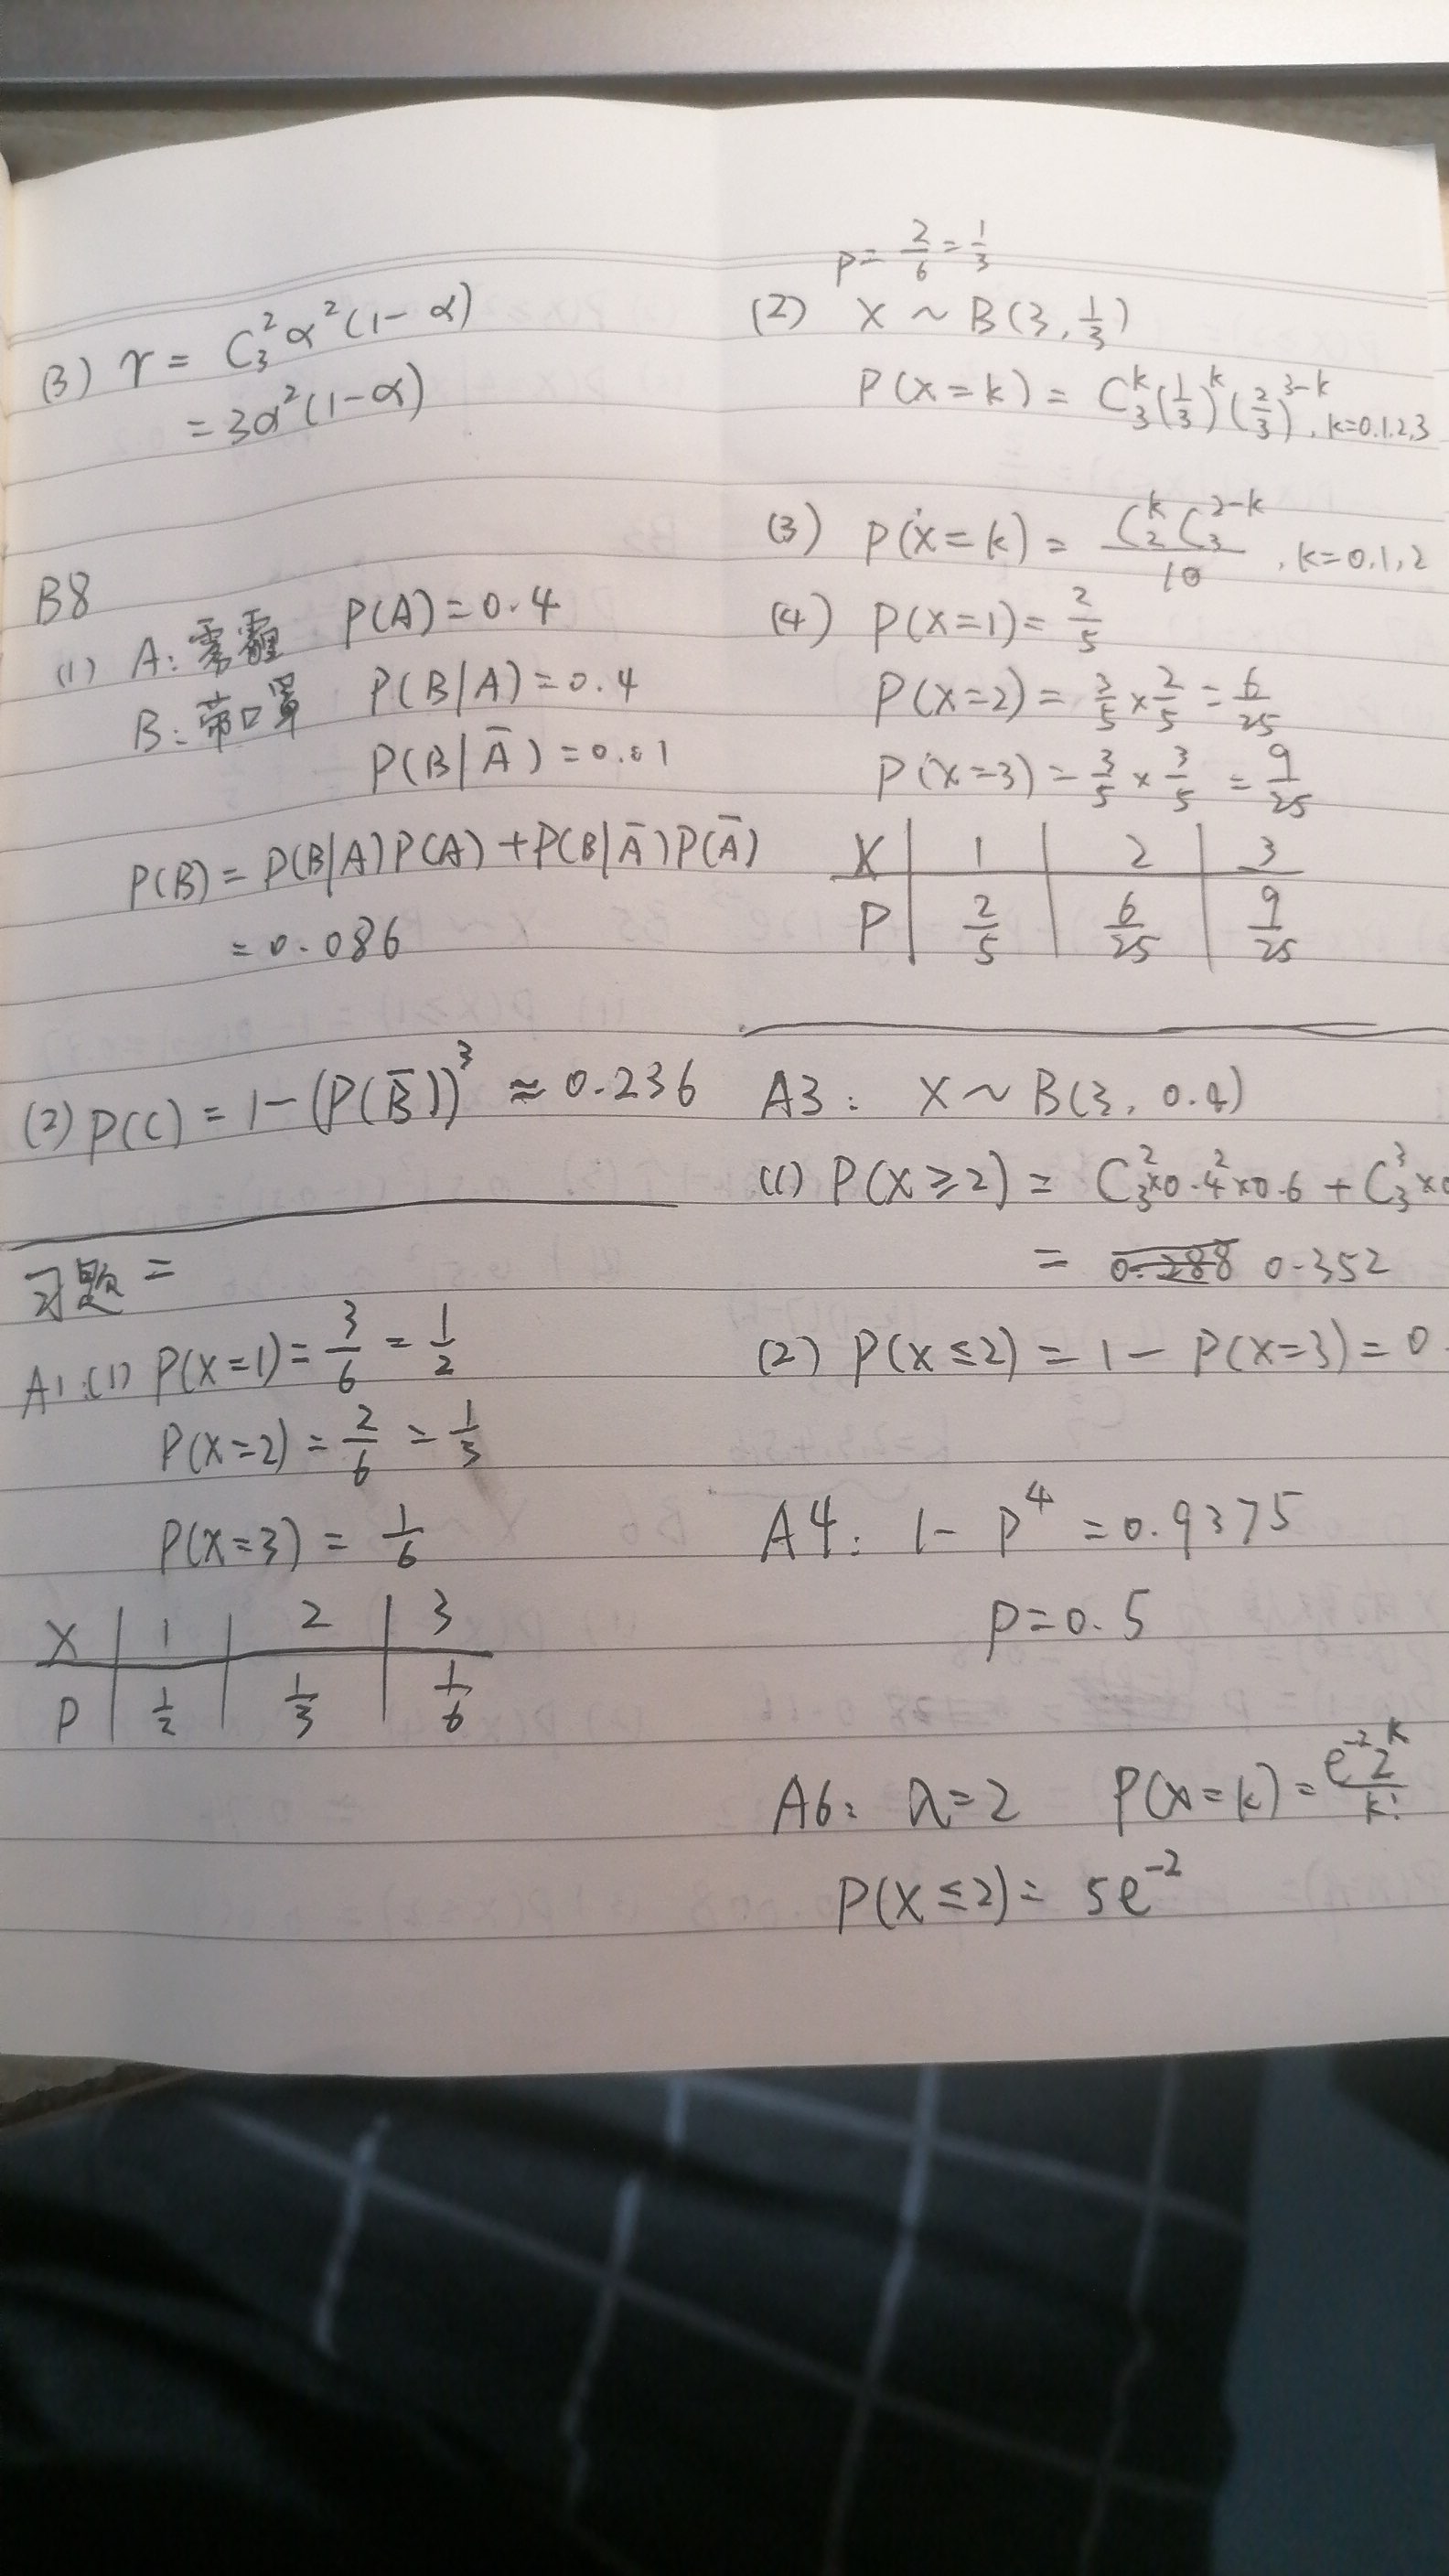 (3) r = C₃²α²(1-α)
= 3α²(1-α)
B8
(1) A: 雾霾 P(A)=0.4
B: 带口罩 P(B|A)=0.4
P(B|Ā)=0.01
P(B)= P(B|A)P(A)+P(B|Ā)P(Ā)
= 0.086
(2) P(C) = 1-(P(B̄))³ ≈ 0.236
习题二
A1:(1) P(X=1)= 3/6 = 1/2
P(X=2)= 2/6 = 1/3
P(X=3) = 1/6
X | 1 | 2 | 3
P | 1/2 | 1/3 | 1/6
P= 2/6 = 1/3
(2) X ~ B(3, 1/3)
P(X=k) = C₃ᵏ(1/3)ᵏ(2/3)³⁻ᵏ, k=0.1.2.3
(3) P(X=k) = C₂ᵏC₃²⁻ᵏ/10, k=0.1,2
(4) P(X=1)= 2/5
P(X=2) = 3/5 × 2/5 = 6/25
P(X=3) = 3/5 × 3/5 = 9/25
X | 1 | 2 | 3
P | 2/5 | 6/25 | 9/25
A3: X~B(3, 0.4)
(1) P(X≥2) = C₃²×0.4²×0.6 + C₃³×0
= 0.288 0.352
(2) P(X≤2) = 1- P(X=3)=0.
A4: 1- P⁴ = 0.9375
P=0.5
A6: λ=2 P(X=k)= e⁻²2ᵏ/k!
P(X≤2)= 5e⁻²